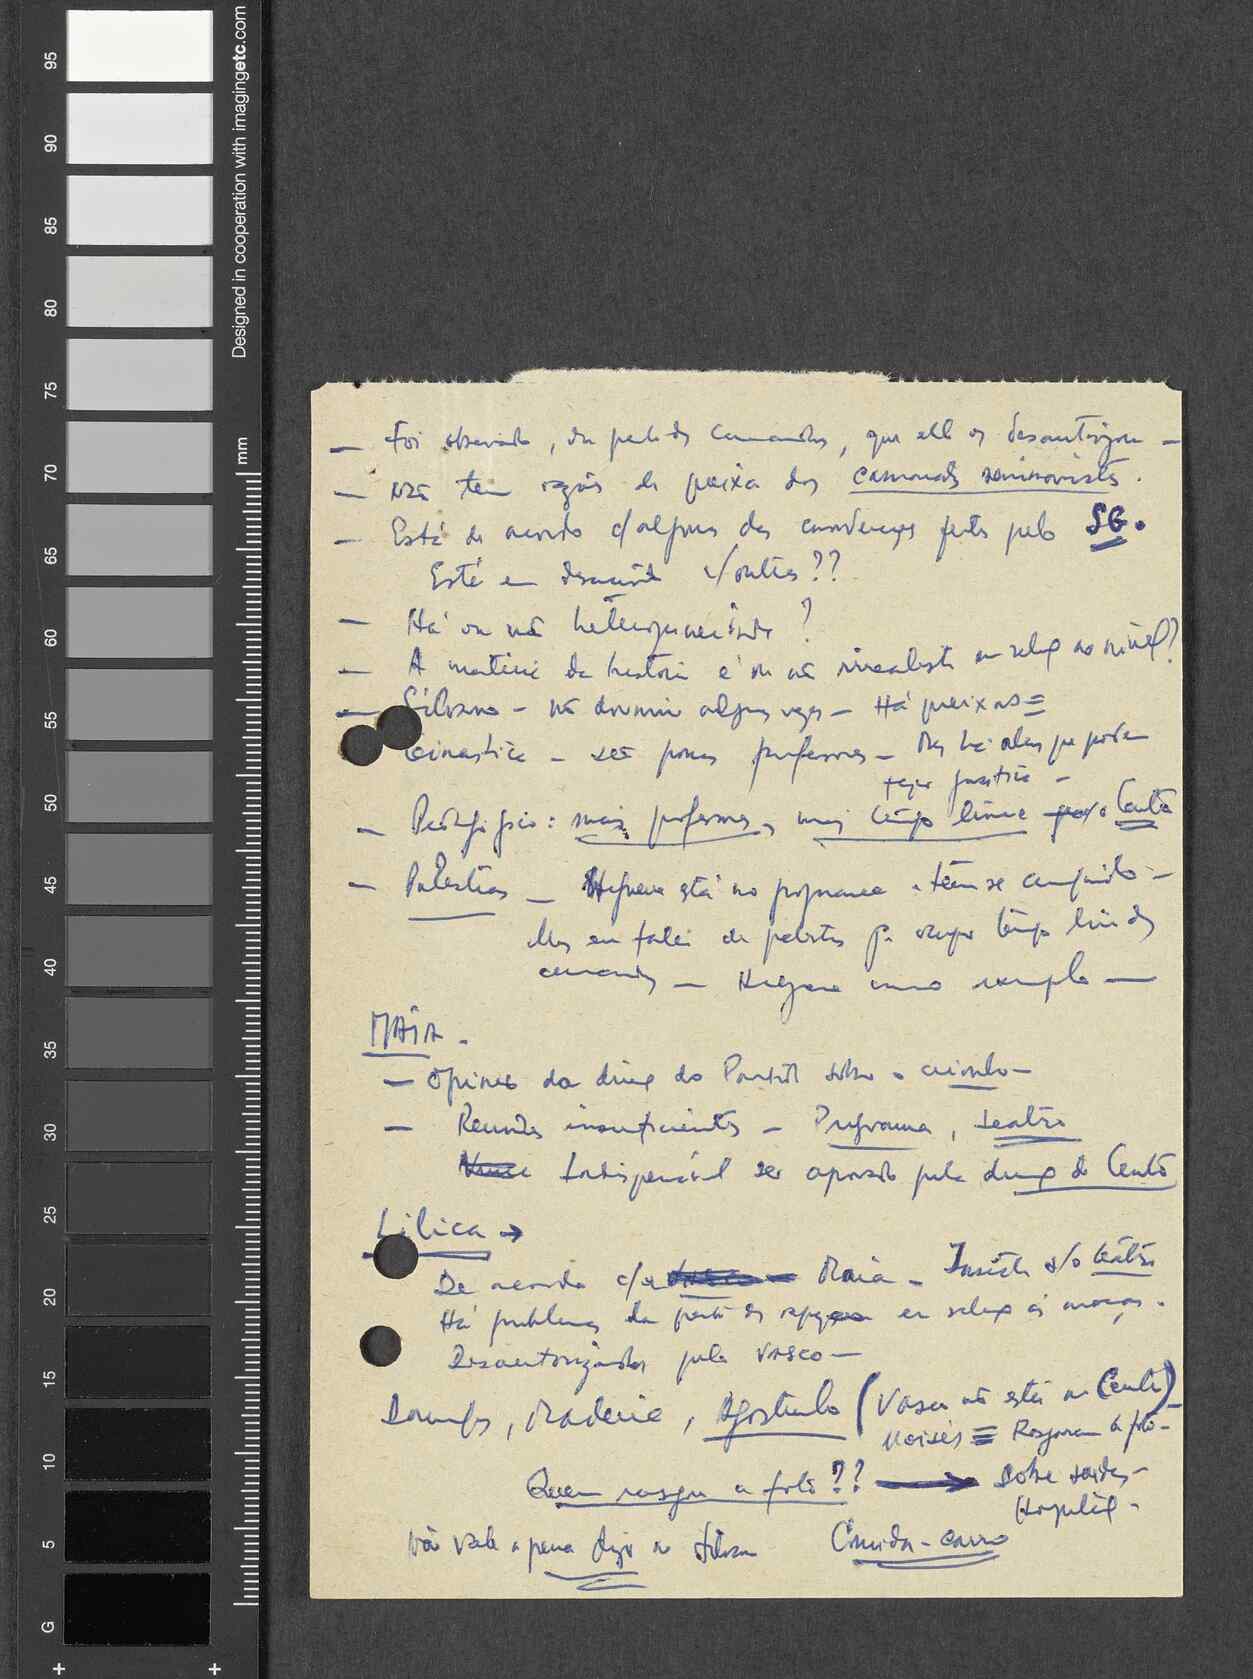 95
90
85
80
75
70
65
60
55
50
45
40
35
30
25
20
15
10
5
G
Designed in cooperation with imagingetc.com
mm
— Foi observado, da parte dos camaradas, que ele os desautorizou —
— Não tem razões de queixa dos camaradas seminaristas.
— Está de acordo c/ algumas das feitas pelo SG.
Está em desacordo c/ outras??
— Há ou não heterogeneidade?
— A matéria da história é ou não irrealista em relação ao nível?
— Silvano — não dormiu algumas vezes — Há queixas =
Ginástica — são poucos professores — Mas há alunos que podem
fazer ginástica —
— : mais professores, mais tempo livre o Centro
— Palestras — Higiene está no programa e tem-se cumprido —
Mas eu falei de palestras p. ocupar tempo livre dos
camaradas — Higiene como exemplo —
MAIA —
— Opinião da direcção do Partido sobre o —
— Reuniões insuficientes — Programa, teatro
Indispensável ser aprovado pela direcção do Centro
Lilica →
De acordo c/ o Maia — Insiste s/o teatro
Há problemas da parte dos rapazes em relação às moças.
Desautorizados pelo VASCO —
Domingos, Madeira, Agostinho (Vasco não está no Centro)
Moisés = Rasgaram a foto —
Quem rasgou a foto?? → Sobre saídas —
Hospital —
Não vale a pena dizer ao Silvano Comida — carro